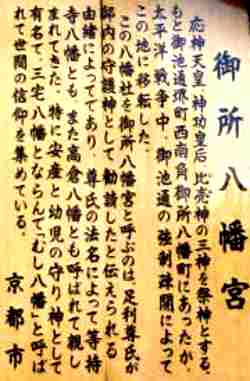 御所八幡宮
応神天皇、神功皇后、比売神の三神を祭神とする。
もと御池通堺町西南角御所八幡町にあったが、
太平洋戦争中、御池通の強制疎開によって
この地に移転した。
この八幡社を御所八幡宮と呼ぶのは、足利尊氏が
邸内の守護神として勧請したと伝えられる
由緒によってであり、尊氏の法名によって等持
寺八幡とも、また高倉八幡とも呼ばれて親し
まれてきた。特に安産と幼児の守り神として
有名で、三宅八幡とならんで「むし八幡」と呼ば
れて世間の信仰を集めている。
京都市